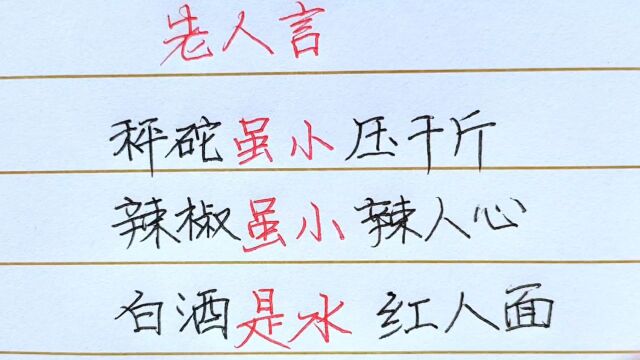 老人言
秤砣虽小压千斤
辣椒虽小辣人心
白酒是水 红人面